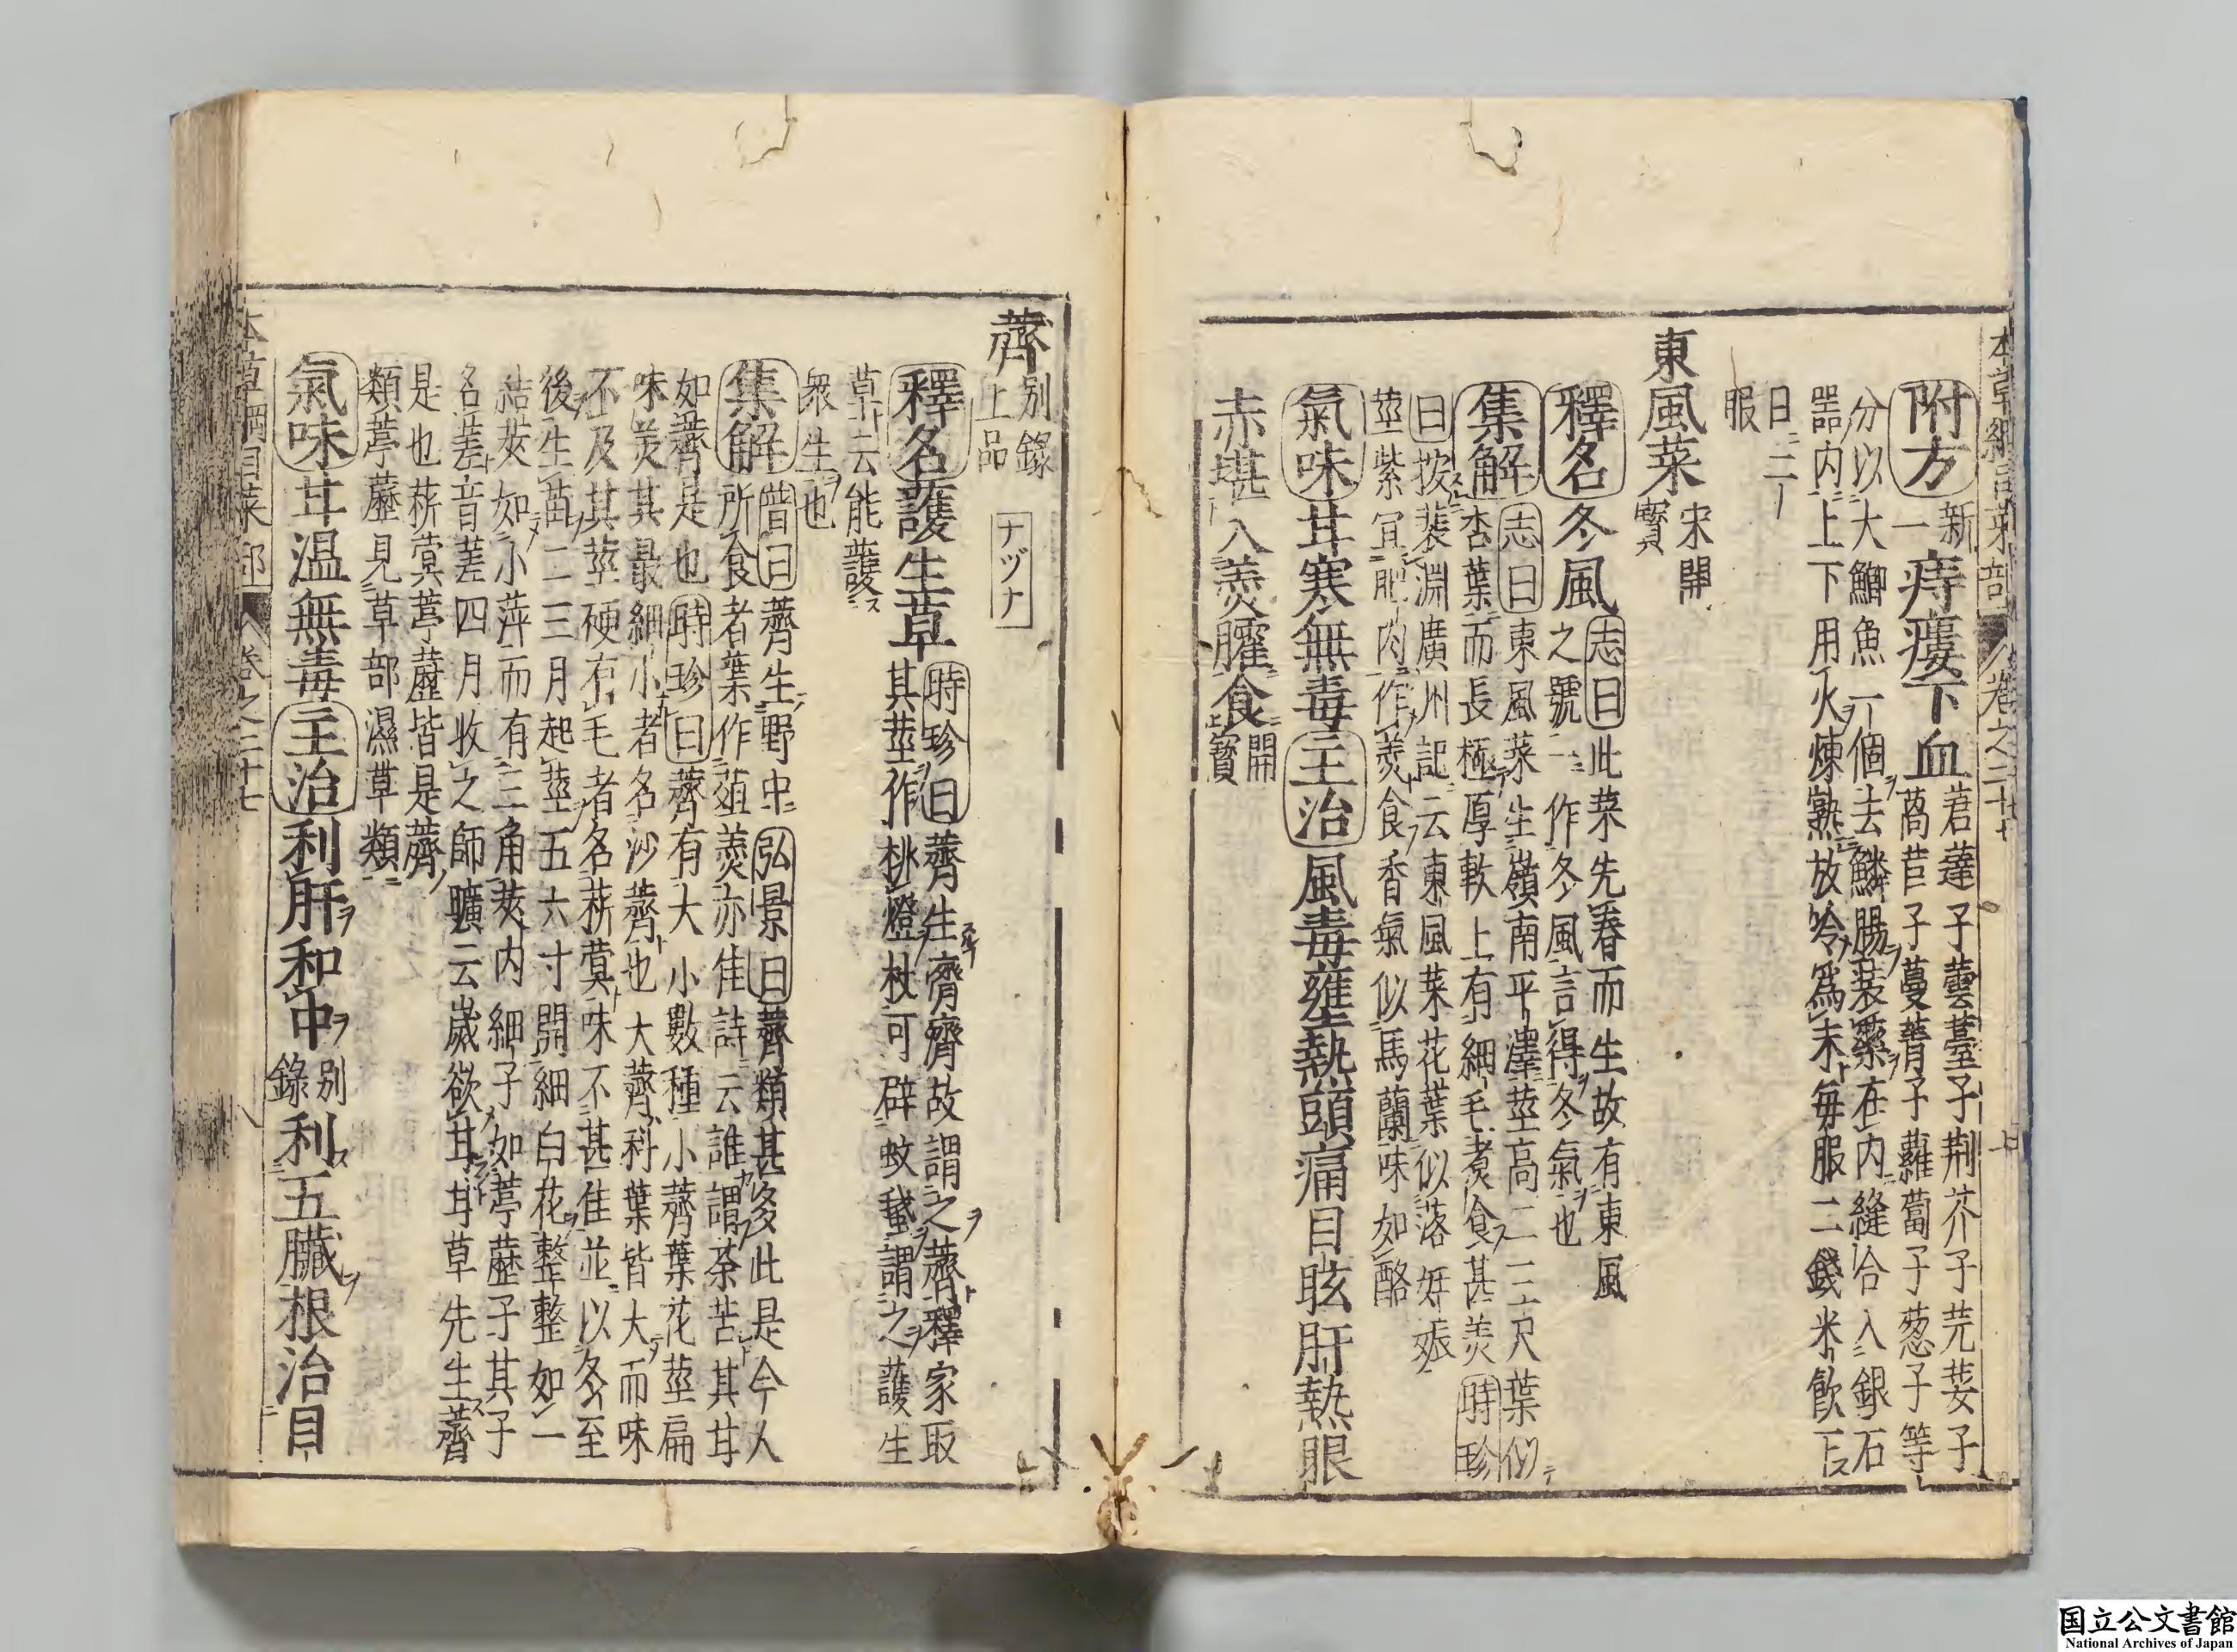 附方新一痔瘻下血莙薘子蕓薹子荆芥子芫荽子
萵苣子蔓菁子蘿蔔子葱子等
分以大鯽魚一個去鱗腸裝藥在内縫合入銀石
器内上下用火煉熟放冷為末每服二錢米飲下
日二
服
東風菜宋開寶
釋名冬風志曰此菜先春而生故有東風
之號一作冬風言得冬氣也
集解志曰東風菜生嶺南平澤莖高二三尺葉似
杏葉而長極厚軟上有細毛煮食甚美時珍
曰按裴淵廣州記云東風菜花葉似落妊娠
莖紫宜肥肉作羹食香氣似馬蘭味如酪
氣味甘寒無毒主治風毒壅熱頭痛目眩肝熱眼
赤堪入羹臛食開寶
薺別錄上品
ナヅナ
釋名護生草時珍曰薺生濟濟故謂之薺釋家取
其莖作挑燈杖可辟蚊蛾謂之護生
草云能護
衆生也
集解普曰薺生野中弘景曰薺類甚多此是今人
所食者葉作葅羹亦佳詩云誰謂荼苦其甘
如薺是也時珍曰薺有大小數種小薺葉花莖扁
味美其最細小者名沙薺也大薺科葉皆大而味
不及其莖硬有毛者名菥蓂味不甚佳並以冬至
後生苗二三月起莖五六寸開細白花整整如一
結莢如小萍而有三角莢内細子如葶藶子其子
名蒫音差四月收之師曠云歲欲甘甘草先生薺
是也菥蓂葶藶皆是薺
類葶藶見草部濕草類
氣味甘温無毒主治利肝和中別錄利五臟根治目
本草綱目菜部 卷之二十七
国立公文書館
National Archives of Japan